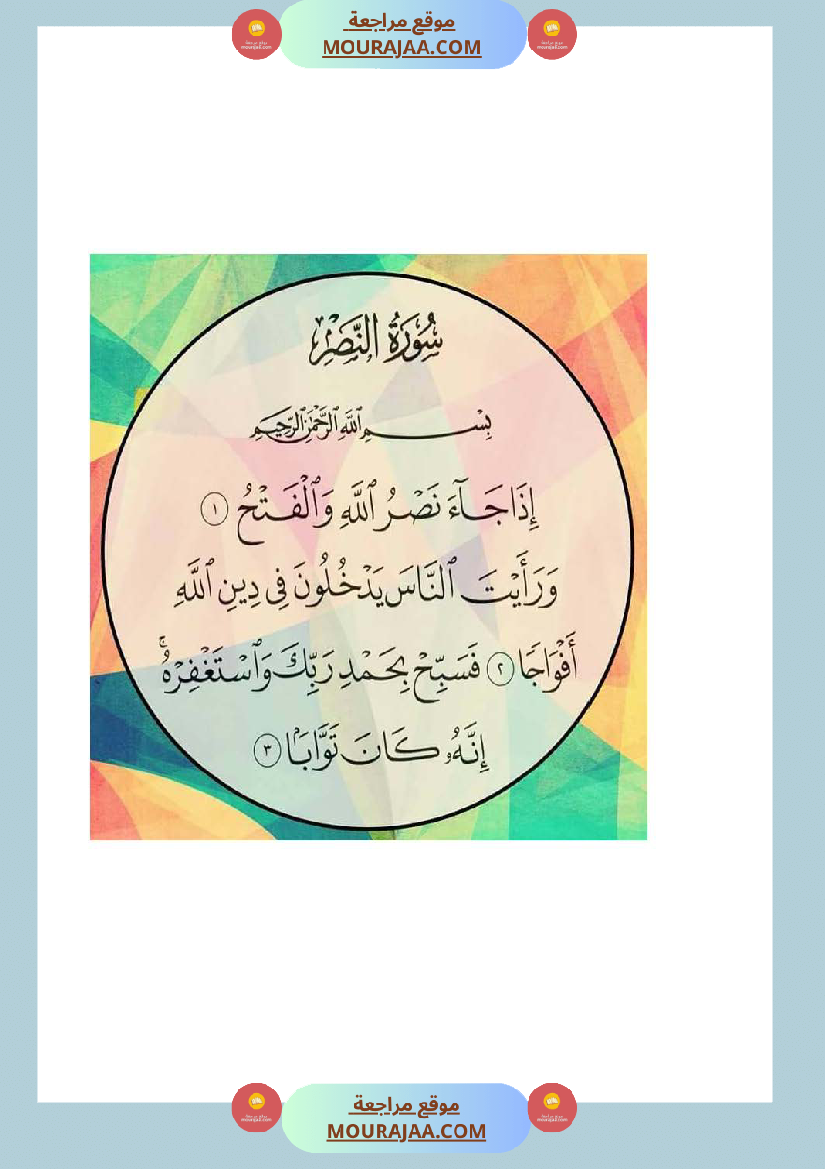 موقع مراجعة
MOURAJAA.COM
سُورَةُ النَّصْرِ
بِسْمِ ٱللَّهِ ٱلرَّحْمَٰنِ ٱلرَّحِيمِ
إِذَا جَآءَ نَصْرُ ٱللَّهِ وَٱلْفَتْحُ ١
وَرَأَيْتَ ٱلنَّاسَ يَدْخُلُونَ فِى دِينِ ٱللَّهِ
أَفْوَاجًا ٢ فَسَبِّحْ بِحَمْدِ رَبِّكَ وَٱسْتَغْفِرْهُ ۚ
إِنَّهُۥ كَانَ تَوَّابًۢا ٣
موقع مراجعة
MOURAJAA.COM